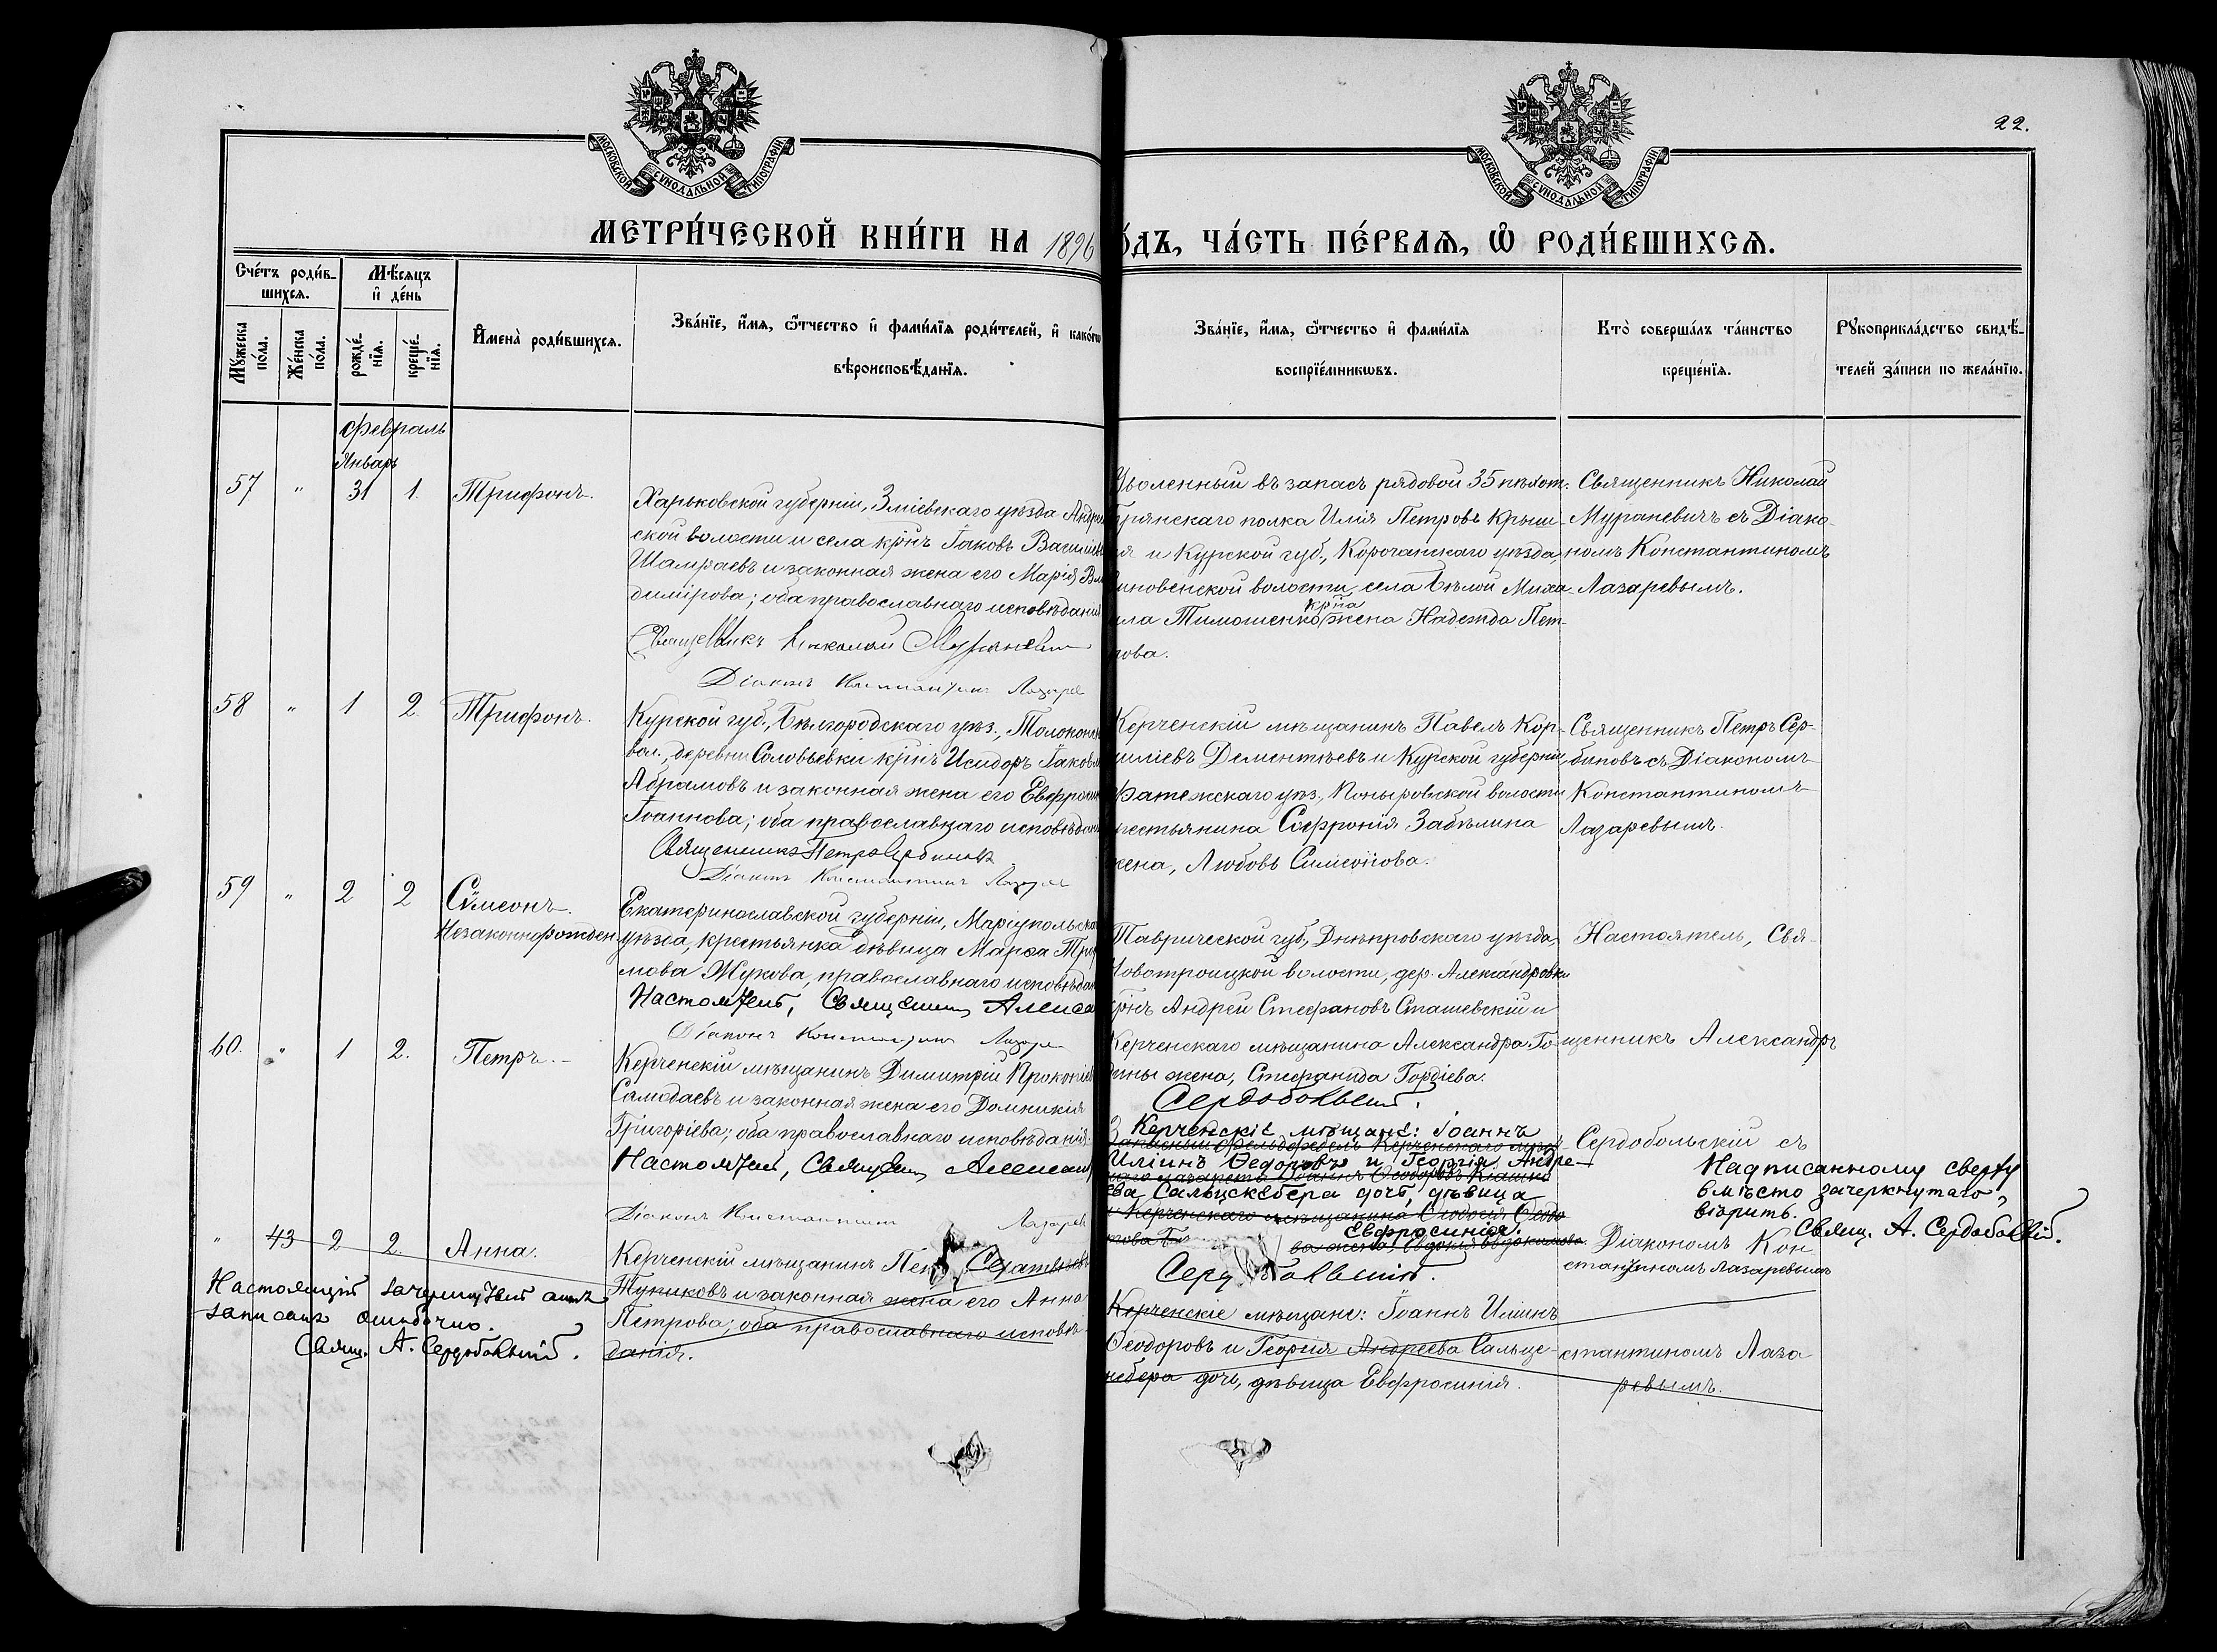 МОСКОВСКОЙ СѴНОДАЛЬНОЙ ТИПОГРАФІИ
МОСКОВСКОЙ СѴНОДАЛЬНОЙ ТИПОГРАФІИ
22.
МЕТРИ́ЧЕСКОЙ КНИ́ГИ НА 1896
О́ДЪ, ЧА́СТЬ ПЕ́РВАѦ, Ѡ҆ РОДИ́ВШИХСѦ.
Сче́тъ роди́в-
шихсѧ.
Мѣ́сѧцъ
и҆ де́нь
Мꙋ́жеска по́ла.
Же́нска по́ла.
рожде́нїѧ.
креще́нїѧ.
И҆мена̀ роди́вшихсѧ.
Зва́нїе, и҆́мѧ, ѻ҆́тчество и҆ фами́лїѧ роди́телей, и҆ како́гѡ
вѣроисповѣ́данїѧ.
Зва́нїе, и҆́мѧ, ѻ҆́тчество и҆ фами́лїѧ
воспрїе́мникѡвъ.
Кто̀ соверша́лъ та́инство
креще́нїѧ.
Рꙋкоприкла́дство свидѣ́-
телей за́писи по жела́нїю.
Февраль
Январь
57 " 31 1. Трифонъ.
Харьковской губерніи, Зміевскаго уѣзда Андре
ской волости и села крнъ Іаковъ Василіе
Шатраевъ и законная жена его Марія Вла
димірова; оба православнаго исповѣданія
Священникъ Николай Мураневич
Діаконъ Константинъ Лазаре
Уволенный въ запасъ рядовой 35 пѣхот.
брянскаго полка Илія Петровъ Крыш-
я и Курской губ., Корочанскаго уѣзда,
иновенской волости, села Бѣлой Миха-
ила Тимошенко крнa жена Надежда Пет-
рова.
Священникъ Николай
Мураневичъ съ Діако-
номъ Константиномъ
Лазаревымъ.
58 " 1 2. Трифонъ.
Курской губ., Бѣлгородскаго уѣз., Толоконск
вол., деревни Соловьевки крнъ Исидоръ Іаковл
Абрамовъ и законная жена его Евфросин
Іоаннова; оба православнаго исповѣдан
Священникъ Петръ Сербиновъ
Діаконъ Константинъ Лазаре
Керченскій мѣщанинъ Павелъ Кор-
ниліевъ Дементьевъ и Курской губерніи,
Фатежскаго уѣз., Поныровской волости
крестьянина Софронія Забѣлина
жена, Любовь Симеонова.
Священникъ Петръ Сер-
биновъ съ Діакономъ
Константиномъ
Лазаревымъ.
59 " 2 2 Сѵмеонъ.
Незаконнорожден.
Екатеринославской губерніи, Маріупольска
уѣзда, крестьянка дѣвица Марѳа Тро
мова Жукова, православнаго исповѣдан
Настоятель, Священник Алекса
Діаконъ Константинъ Лазаре
Таврической губ., Днѣпровскаго уѣзда,
Новотроицкой волости, дер. Александровки
крнъ Андрей Стефановъ Сташевскій и
Керченскаго мѣщанина Александра Го-
ины жена, Стефанида Гордіева.
Сердобольскій.
Настоятель, Свя-
щенникъ Александръ
60. " 1 2. Петръ.-
Керченскій мѣщанинъ Димитрій Прокопіе
Самодаевъ и законная жена его Домникія
Григоріева; оба православнаго исповѣданія.
Настоятель, Священ Александ
Діаконъ Константинъ Лазарев
Керченскіе мѣщане: Іоаннъ
Запасный фельдфебель Керченскаго мѣст
Иліинъ Ѳедоровъ и Георгія Андре-
наго лазарета Іоаннъ Ѳеодоровъ
ева Сальцскебера дочь, дѣвица
и Керченскаго мѣщанина Ѳеодосія Ѳеодо
Евфросинія.
ва жена Евдокія Евдокимова.
Сердобольскій.
Сердобольскій съ
Діакономъ Кон
стантиномъ Лазаревымъ
Надписанному сверху
вмѣсто зачеркнутаго,
вѣрить.
Свящ. А. Сердобольскій.
" 43 2 2. Анна.
Керченскій мѣщанинъ Пет
Тупиковъ и законная жена его Анна
Петрова; оба православнаго исповѣ-
данія.
Керченскіе мѣщане: Іоаннъ Иліинъ
Ѳеодоровъ и Георгія Андреева Сальце-
небера дочь, дѣвица Евфросинія.
стантиномъ Лаза
ревымъ.
Настоящій зачеркнутый актъ
записанъ ошибочно.
Свящ. А. Сердобольскій.